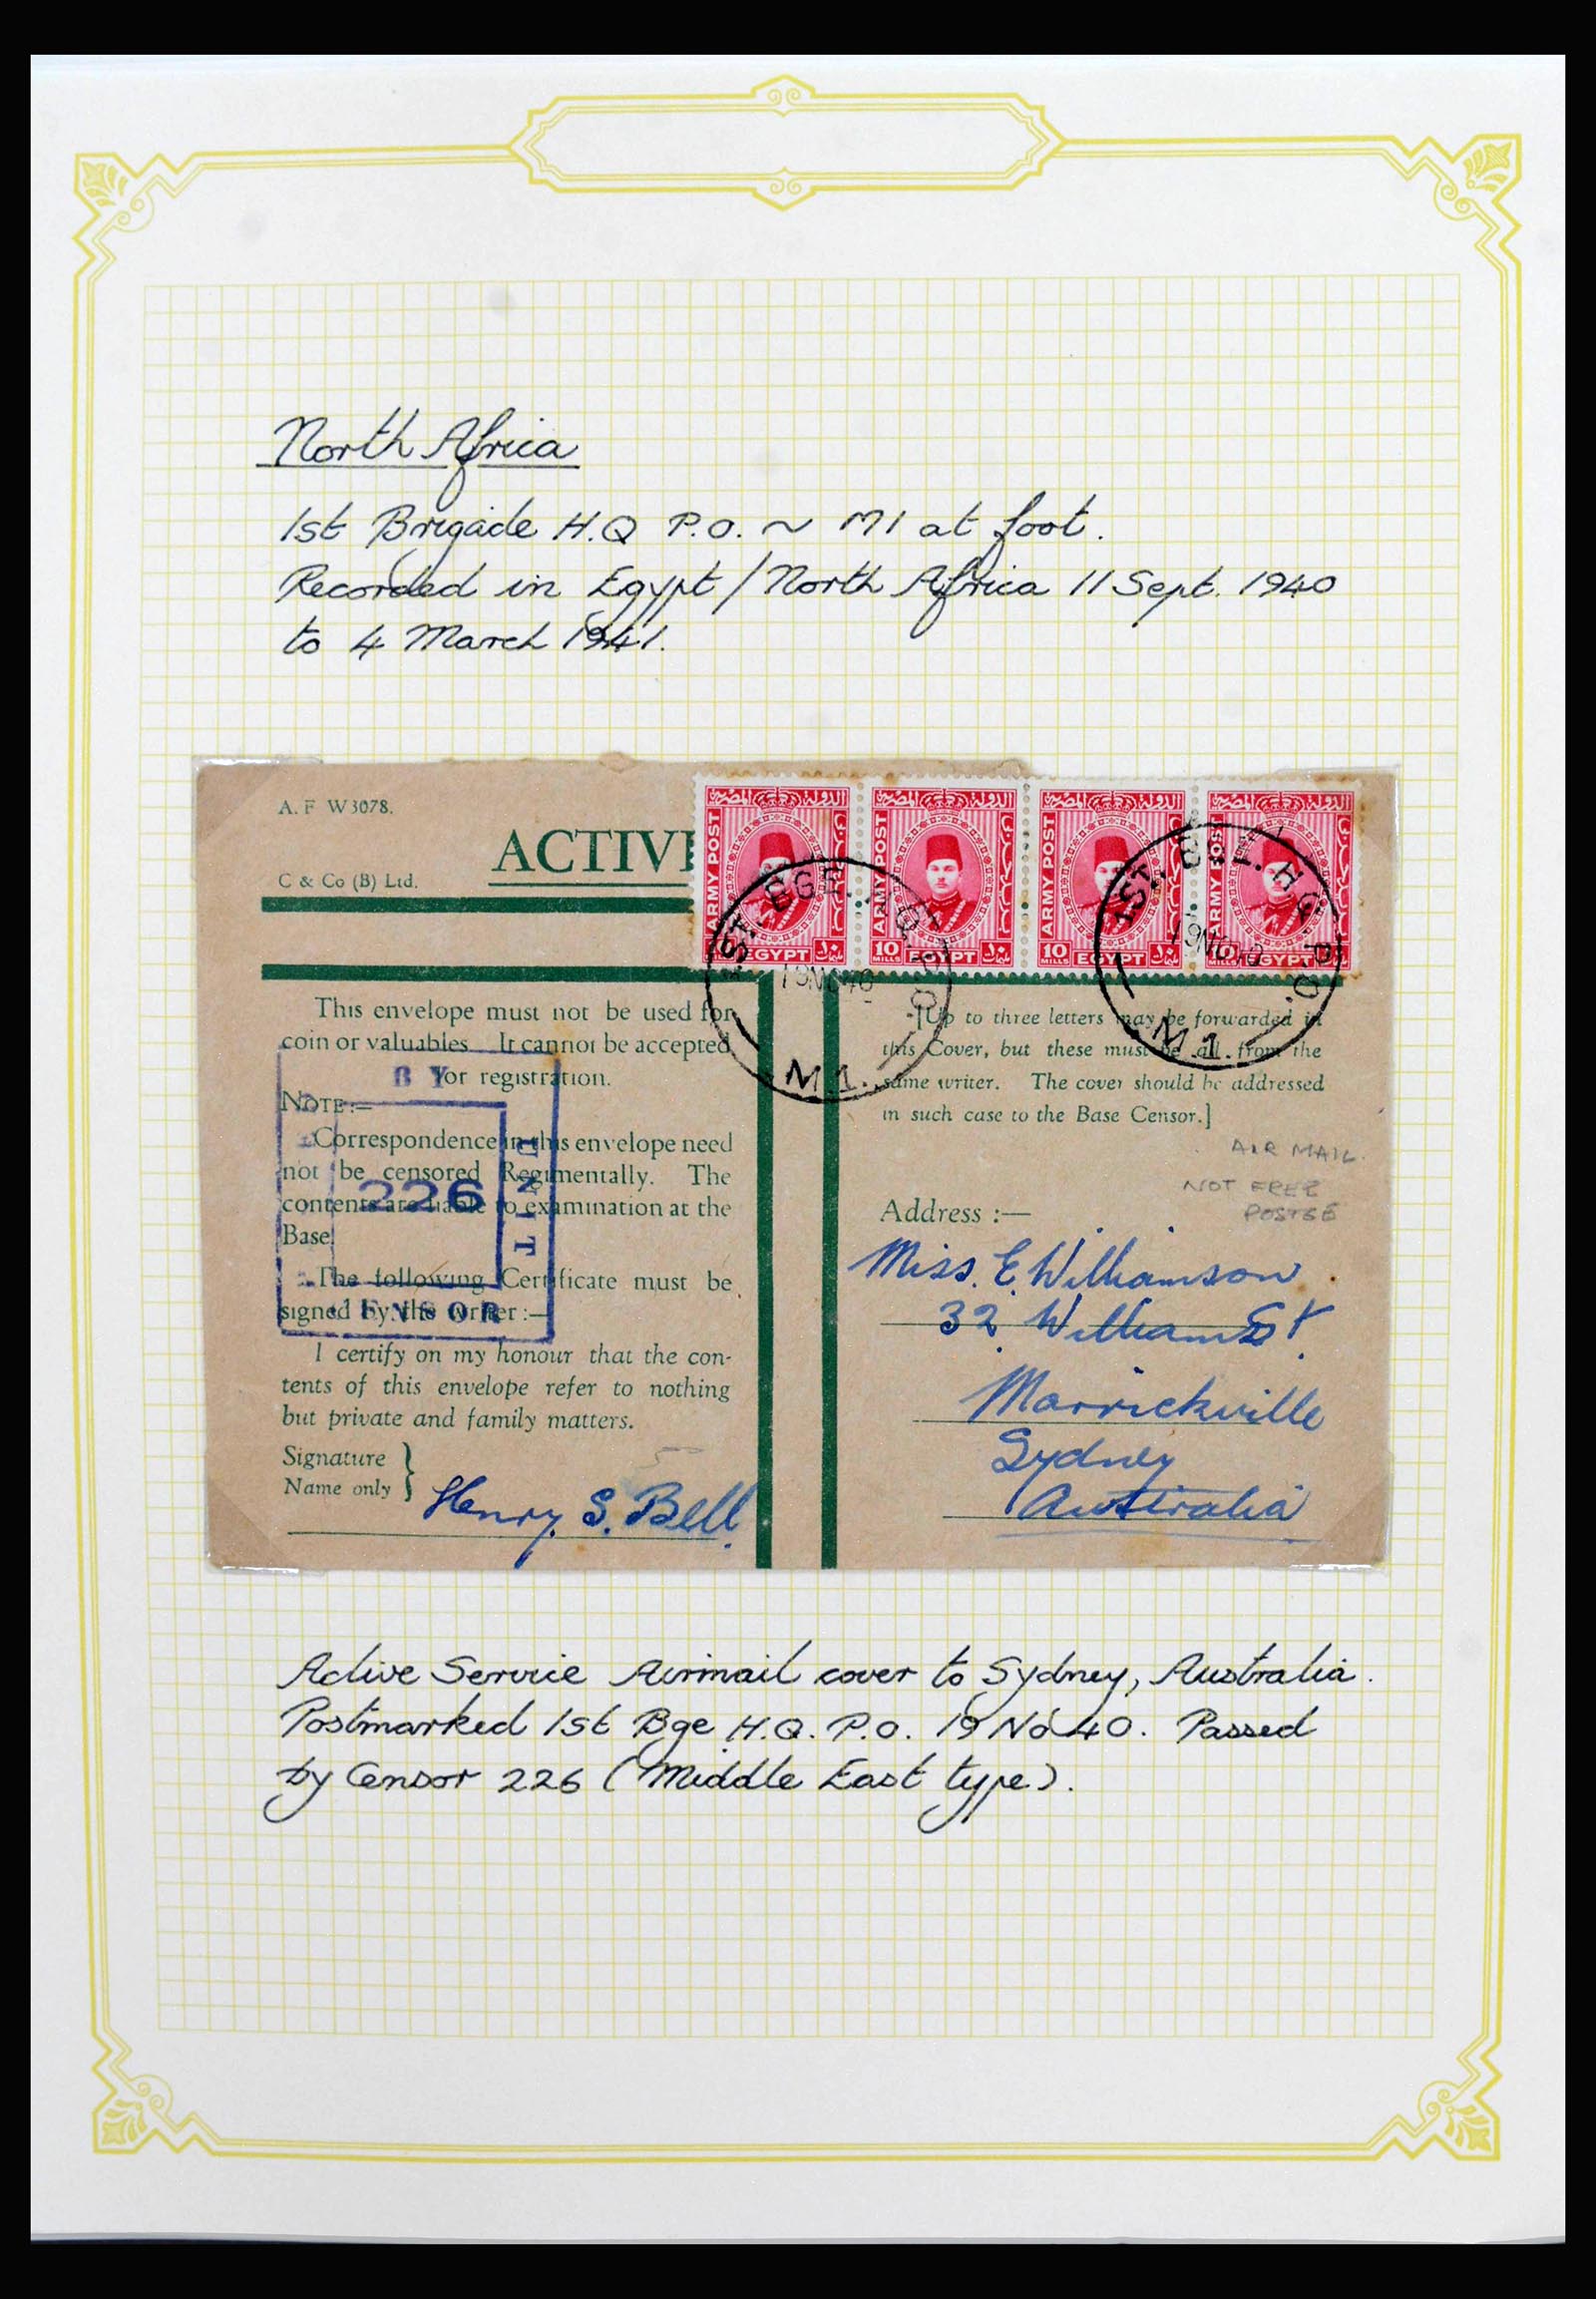 North Africa
1st Brigade H.Q P.O. ~ M1 at foot.
Recorded in Egypt / North Africa 11 Sept. 1940
to 4 March 1941.
A. F W3078.
C & Co (B) Ltd.
ACTIV
ARMY POST
10 MILLS
EGYPT
ARMY POST
10 MILLS
EGYPT
ARMY POST
10 MILLS
EGYPT
ARMY POST
EGYPT
الدولة المصرية
1ST. BGE. H.Q. P.O.
19 NO 40
M.1.
1ST. BGE. H.Q. P.O.
19 NO 40
M.1.
This envelope must not be used for
coin or valuables. It cannot be accepted
for registration.
NOTE:—
Correspondence in this envelope need
not be censored Regimentally. The
contents are liable to examination at the
Base.
The following Certificate must be
signed by the writer:—
I certify on my honour that the con-
tents of this envelope refer to nothing
but private and family matters.
Signature
Name only
Henry S. Bell
BY
226
UNIT
CENSOR
[Up to three letters may be forwarded in
this Cover, but these must be all from the
same writer. The cover should be addressed
in such case to the Base Censor.]
AIR MAIL.
NOT FREE
Address :—
Miss. E. Williamson
32 William St.
Marrickville
Sydney
Australia
Active Service Airmail cover to Sydney, Australia.
Postmarked 1st Bge H.Q. P.O. 19 No 40. Passed
by Censor 226 (Middle East type).